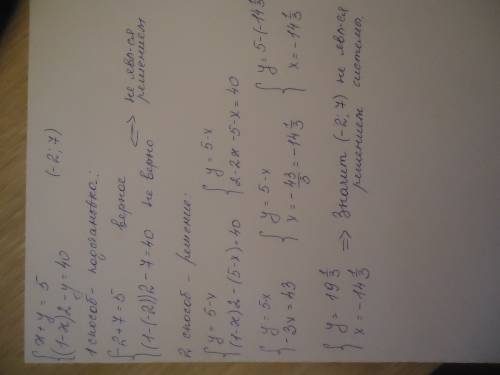 { x + y = 5
{ (1-x)2 - y = 40 (-2; 7)
1 способ - подстановка:
{ -2 + 7 = 5 верное
{ (1-(-2))2 - 7 = 40 не верно <=> не явл-ся решением
2 способ - решение:
{ y = 5-x
{ (1-x)2 - (5-x) = 40 { y = 5-x
{ 2-2x - 5-x = 40
{ y = 5x
{ -3x = 43 { y = 5-x
{ x = -43/3 = -14 1/3 { y = 5-(-14 1/3
{ x = -14 1/3
{ y = 19 1/3
{ x = -14 1/3 => Значит (-2; 7) не явл-ся
решением системы.